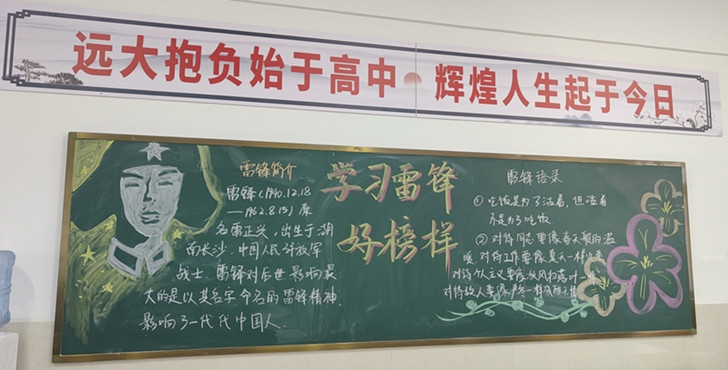 远大抱负始于高中 辉煌人生起于今日
雷锋简介
雷锋(1940.12.18
—1962.8.15)原
名雷正兴,出生于湖
南长沙.中国人民解放军
战士.雷锋对后世影响最
大的是以其名字命名的雷锋精神.
影响了一代代中国人.
学习雷锋
好榜样
雷锋语录
①吃饭是为了活着,但活着
不是为了吃饭
②对待同志要像春天般的温
暖.对待工作要像夏天一样
对待个人主义要像秋风扫落叶一
对待敌人要像严冬一样